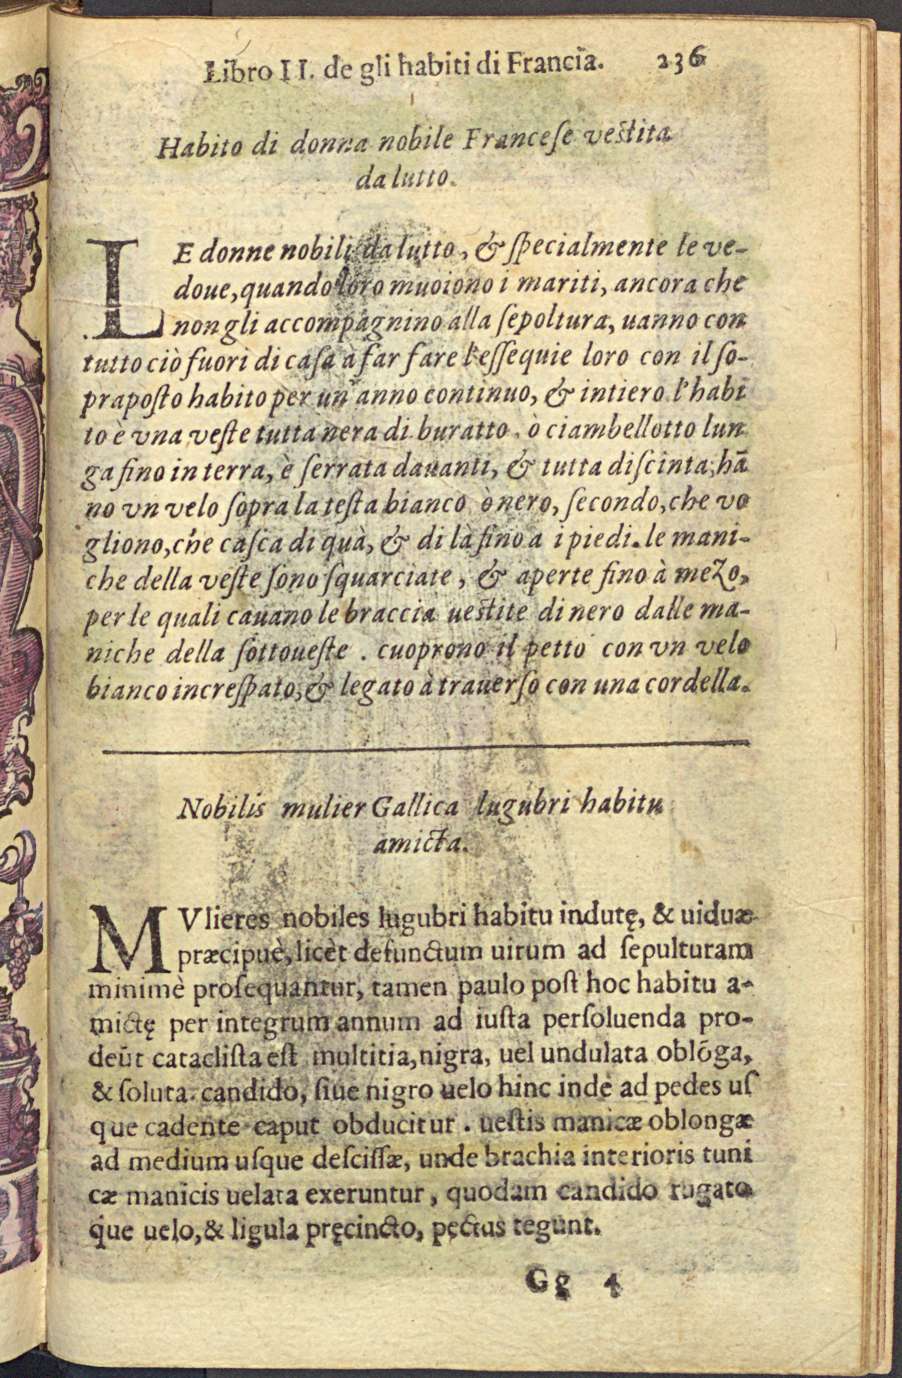 Libro II. de gli habiti di Francia. 236
Habito di donna nobile Franceſe veſtita
da lutto.
LE donne nobili da lutto, & ſpecialmente le ve-
doue, quando loro muoiono i mariti, ancora che
non gli accompagnino alla ſepoltura, uanno con
tutto ciò fuori di caſa à far fare l'eſſequie loro con il ſo-
prapoſto habito per un'anno continuo, & intiero l'habi
to è vna veſte tutta nera di buratto, ò ciambellotto lun
ga fino in terra, è ſerrata dauanti, & tutta diſcinta; hā
no vn velo ſopra la teſta bianco ò nero, ſecondo, che vo
gliono, che caſca di quà, & di là fino a i piedi. le mani-
che della veſte ſono ſquarciate, & aperte fino à mezo,
per le quali cauano le braccia ueſtite di nero dalle ma-
niche della ſottoueſte. cuoprono il petto con vn velo
bianco increſpato, & legato à trauerſo con una cordella.
Nobilis mulier Gallica lugubri habitu
amicta.
MVlieres nobiles lugubri habitu indutę, & uiduæ
præcipuè, licèt defunctum uirum ad ſepulturam
minimè proſequantur, tamen paulo poſt hoc habitu a-
mictę per integrum annum ad iuſta perſoluenda pro-
deūt catacliſta eſt multitia, nigra, uel undulata oblōga,
& ſoluta. candido, ſiue nigro uelo hinc inde ad pedes uſ
que cadente caput obducitur. ueſtis manicæ oblongæ
ad medium uſque deſciſſæ, unde brachia interioris tuni
cæ manicis uelata exeruntur, quodam candido rugato
que uelo, & ligula pręcincto, pęctus tegunt.
Gg 4